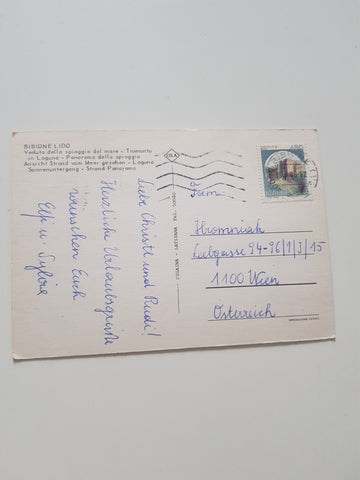 BIBIONE LIDO
Veduta della spiaggia dal mare - Tramonto
in Laguna - Panorama della spiaggia
Ansicht Strand vom Meer gesehen - Laguna
Sonnenuntergang - Strand Panorama
Liebe Christl und Rudi!
Herzliche Urlaubsgrüße
wünschen Euch
u. Sylvia
Fam.
Hromniak
Liebgasse 94-96/1/3/15
1100 Wien
Österreich